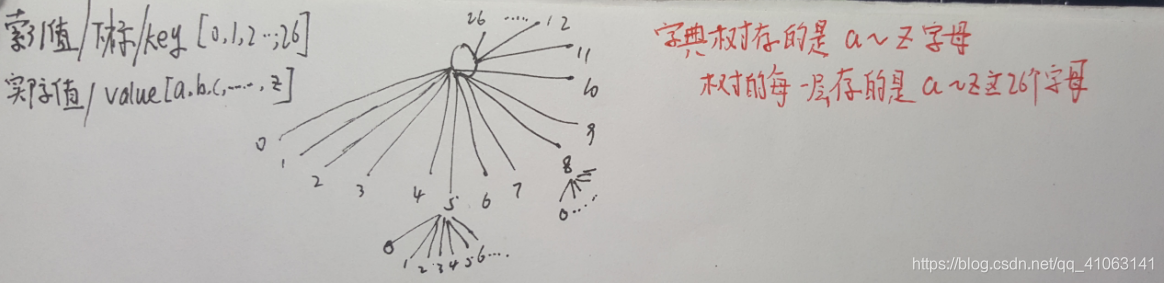 索引值/下标/key [0,1,2...,26]
实际值/value[a,b,c,......,z]
26 ..... 12
11
10
9
8
0....
0 1 2 3 4 5 6 7
0 1 2 3 4 5 6...
字典树存的是 a~z 字母
树的每一层存的是 a~z这26个字母
https://blog.csdn.net/qq_41063141